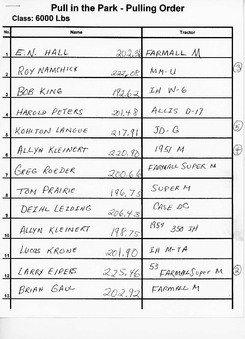 Pull in the Park - Pulling Order
Class: 6000 Lbs
Name Tractor
1 E.N. HALL 202.36 FARMALL M
2 ROY NAMCHICK 222.08 MM-U 3
3 BOB KING 192.62 IH W-6
4 HAROLD PETERS 201.48 ALLIS D-17
5 217.91 JD-G 5
6 ALLYN KLEINERT 220.90 1951 M 4
7 GREG ROEDER 200.66 FARMALL SUPER M
8 TOM PRAIRIE 196.75 SUPER M
9 LEIDING 206.43 CASE DC
10 ALLYN KLEINERT 198.75 1957 350 IH
11 LUCAS KRONE 201.90 IH M-TA
12 LARRY EIPERS 225.46 53 FARMALL SUPER M 2
13 BRIAN GAUL 202.92 FARMALL M